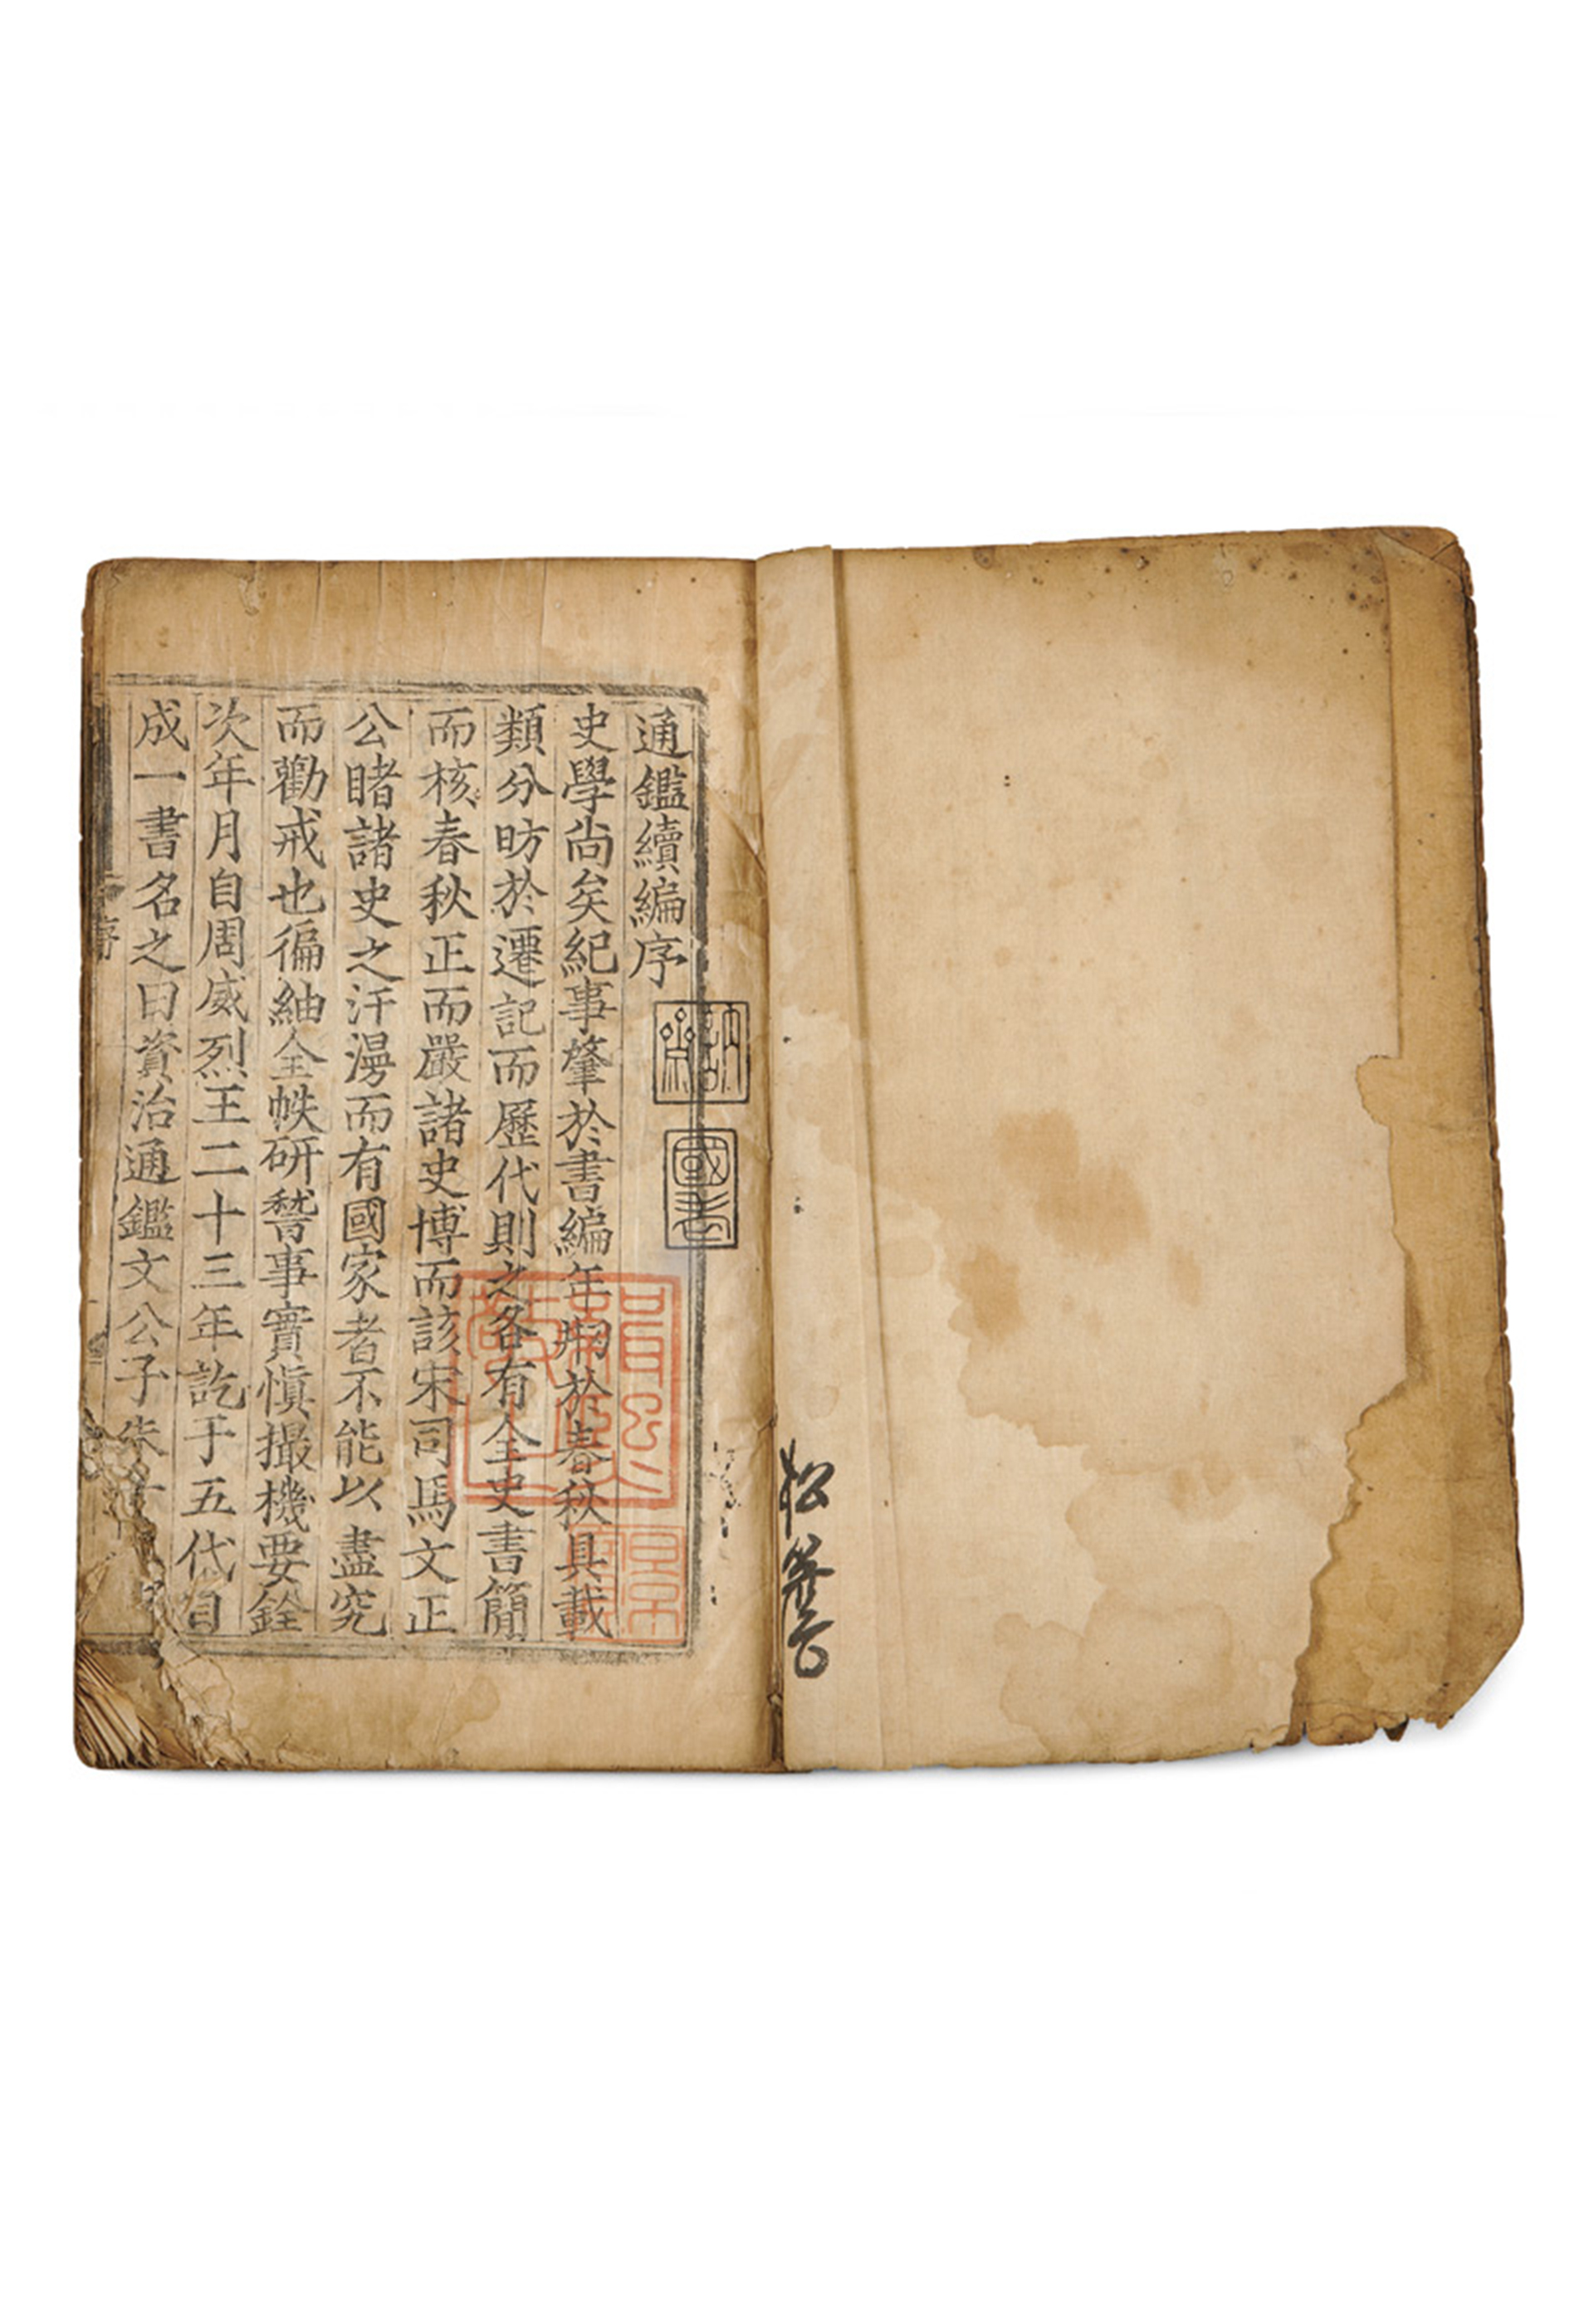 通鑑續編序
史學尚矣紀事肇於書編年昉於春秋具載
類分昉於遷記而歷代則之各有全史書簡
而核春秋正而嚴諸史博而該宋司馬文正
公睹諸史之汗漫而有國家者不能以盡究
而勸戒也徧紬全帙研䅲事實慎撮機要銓
次年月自周威烈王二十三年訖于五代自
成一書名之曰資治通鑑文公子朱子
序
訥齋
國耆
松菴